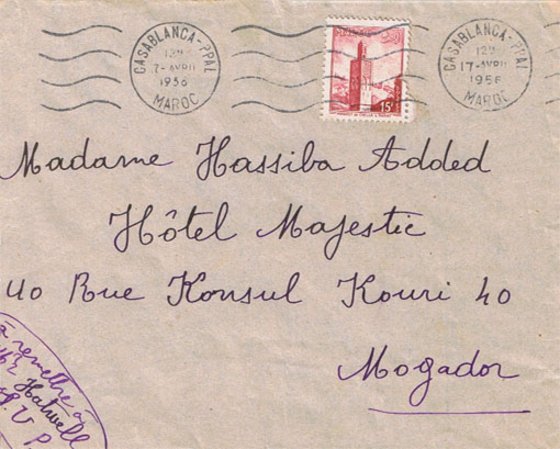 CASABLANCA-PPAL
12H
7-AVRIL
1956
MAROC
CASABLANCA-PPAL
12H
17-AVRIL
1956
MAROC
15F
Madame Hassiba Added
Hôtel Majestic
40 Rue Konsul Kouri 40
Mogador
à remettre à
Hatwell
S. V. P.